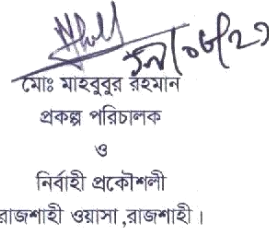 মোঃ মাহবুবুর রহমান
প্রকল্প পরিচালক
ও
নির্বাহী প্রকৌশলী
রাজশাহী ওয়াসা,রাজশাহী।